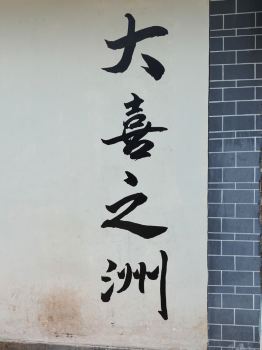 大喜之洲